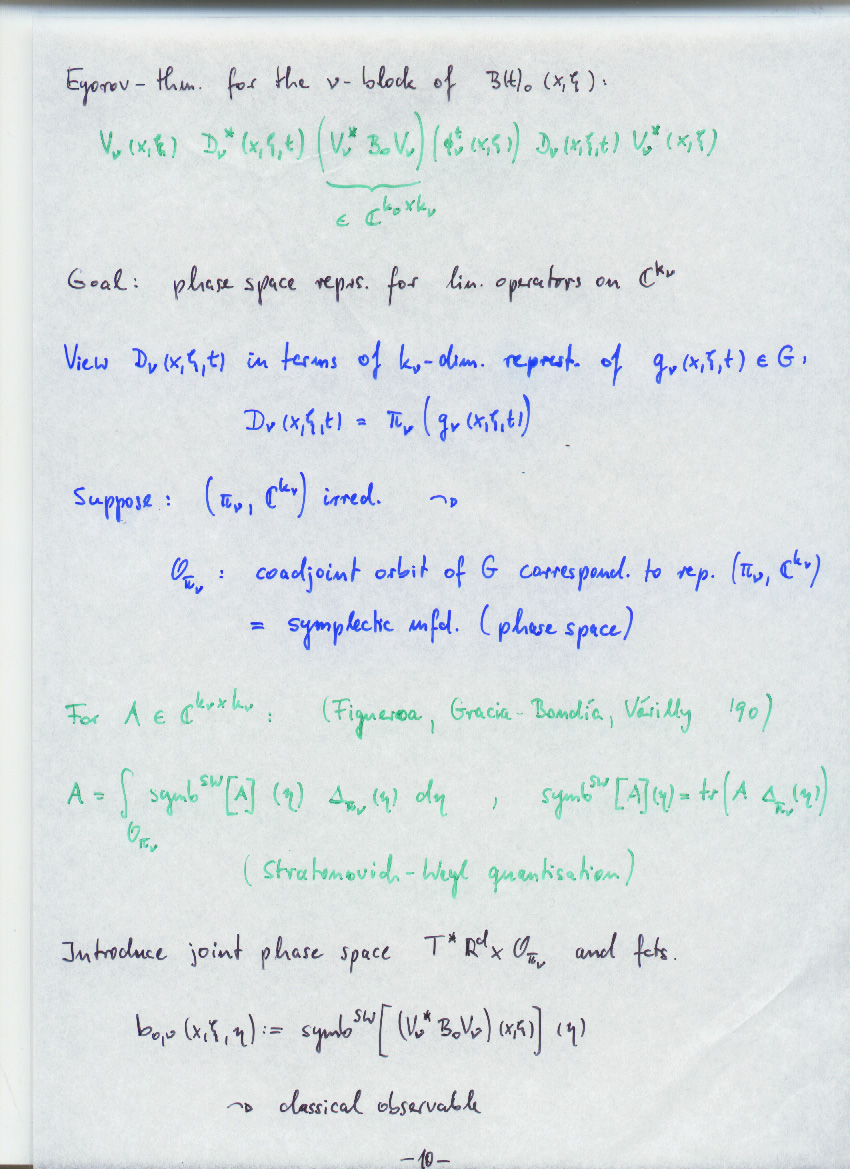 Egorov-thm. for the ν-block of B(t)₀ (x,ξ):
V_ν (x,ξ) D_ν^* (x,ξ,t) (V_ν^* B₀ V_ν) (ϕ_ν^t (x,ξ)) D_ν (x,ξ,t) V_ν^* (x,ξ)
∈ ℂ^{k_ν×k_ν}
Goal: phase space repres. for lin. operators on ℂ^{k_ν}
View D_ν (x,ξ,t) in terms of k_ν-dim. represt. of g_ν (x,ξ,t) ∈ G,
D_ν (x,ξ,t) = π_ν (g_ν (x,ξ,t))
Suppose: (π_ν, ℂ^{k_ν}) irred. ⇝
O_{π_ν} : coadjoint orbit of G correspond. to rep. (π_ν, ℂ^{k_ν})
= symplectic mfd. (phase space)
For A ∈ ℂ^{k_ν×k_ν} : (Figueroa, Gracia-Bondía, Várilly '90)
A = ∫_{O_{π_ν}} symb^{SW} [A] (η) Δ_{π_ν} (η) dη , symb^{SW} [A] (η) = tr (A Δ_{π_ν} (η))
(Stratonovich-Weyl quantisation)
Introduce joint phase space T^*ℝ^d × O_{π_ν} and fcts.
b_{0,ν} (x,ξ,η) := symb^{SW} [(V_ν^* B₀ V_ν) (x,ξ)] (η)
⇝ classical observable
-10-